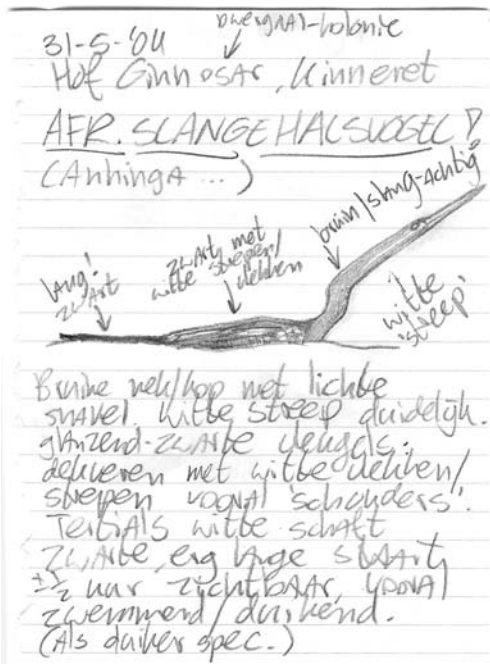 31-5-'04 Dwergaal-kolonie
Hof Ginnosar, Kinneret
AFR. SLANGEHALSVOGEL!
(Anhinga ...)
bruin/slang-achtig
zwart met
witte strepen/
vlekken
lang!
zwart
witte
'streep'
Bruine nek/kop met lichte
snavel. Witte streep duidelijk.
glanzend-zwarte vleugels.
dekveren met witte vlekken/
strepen vooral 'schouders'.
Tertials witte schaft
zwarte, erg lange staart,
± ½ uur zichtbaar, vooral
zwemmend/duikend.
(Als duiker spec.)